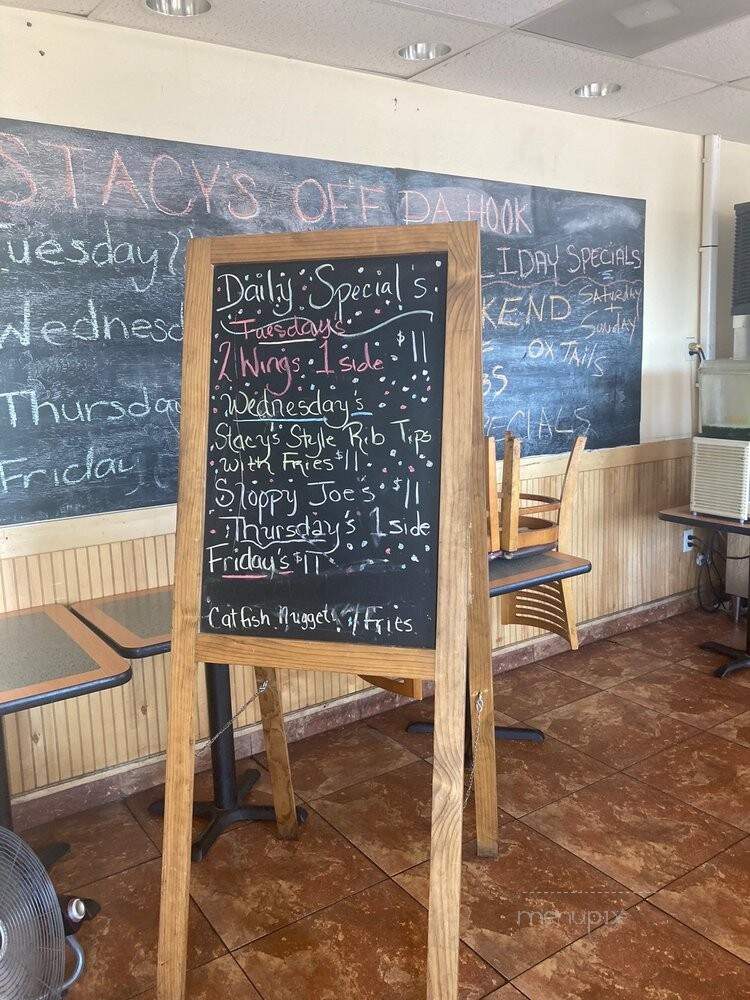 STACY'S OFF DA HOOK
Tuesday
Wednesd
Thursday
Friday
LIDAY SPECIALS
KEND Saturday
+
Sunday
OXTAILS
SPECIALS
Daily Special's
Tuesday's
2 Wings 1 side $11
Wednesday's
Stacy's Style Rib Tips
with Fries $11
Sloppy Joe's $11
Thursday's 1 side
Friday's $11
Catfish Nuggets w/Fries
menupix